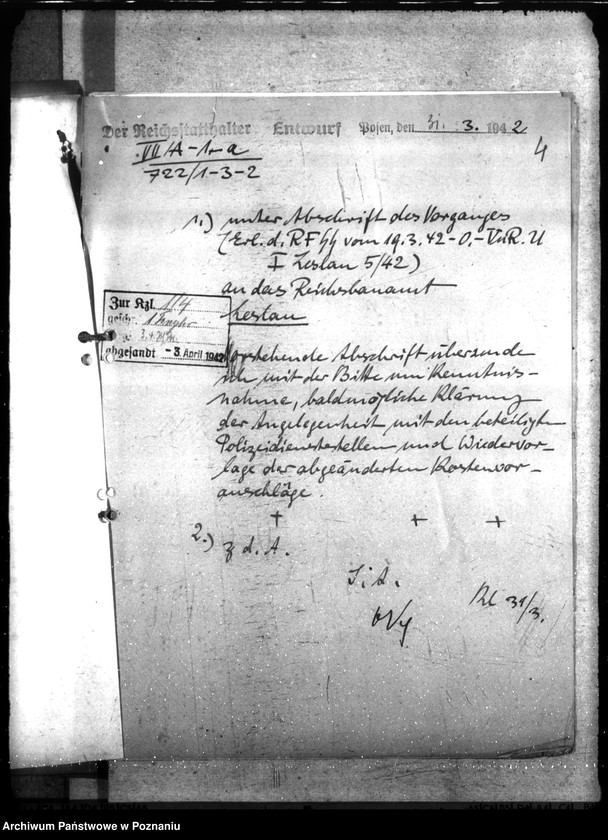 Der Reichsstatthalter Entwurf Posen, den 31. 3. 1942
VII/A-1-a
722/1-3-2
4
1.) unter Abschrift des Vorganges
(Erl. d. RFSS vom 19.3.42-O.-VuR. U
I Leslau 5/42)
an das Reichsbauamt
Leslau
Zur Kzl. 1/4
geschr.
abgesandt -3. April 1942
Vorstehende Abschrift übersende
ich mit der Bitte um Kenntnis-
nahme, baldmögliche Klärung
der Angelegenheit mit den beteiligten
Polizeidienststellen und Wiedervor-
lage der abgeänderten Kostenvor-
anschläge.
+ + +
2.) z. d. A.
I. A.
31/3.
Archiwum Państwowe w Poznaniu